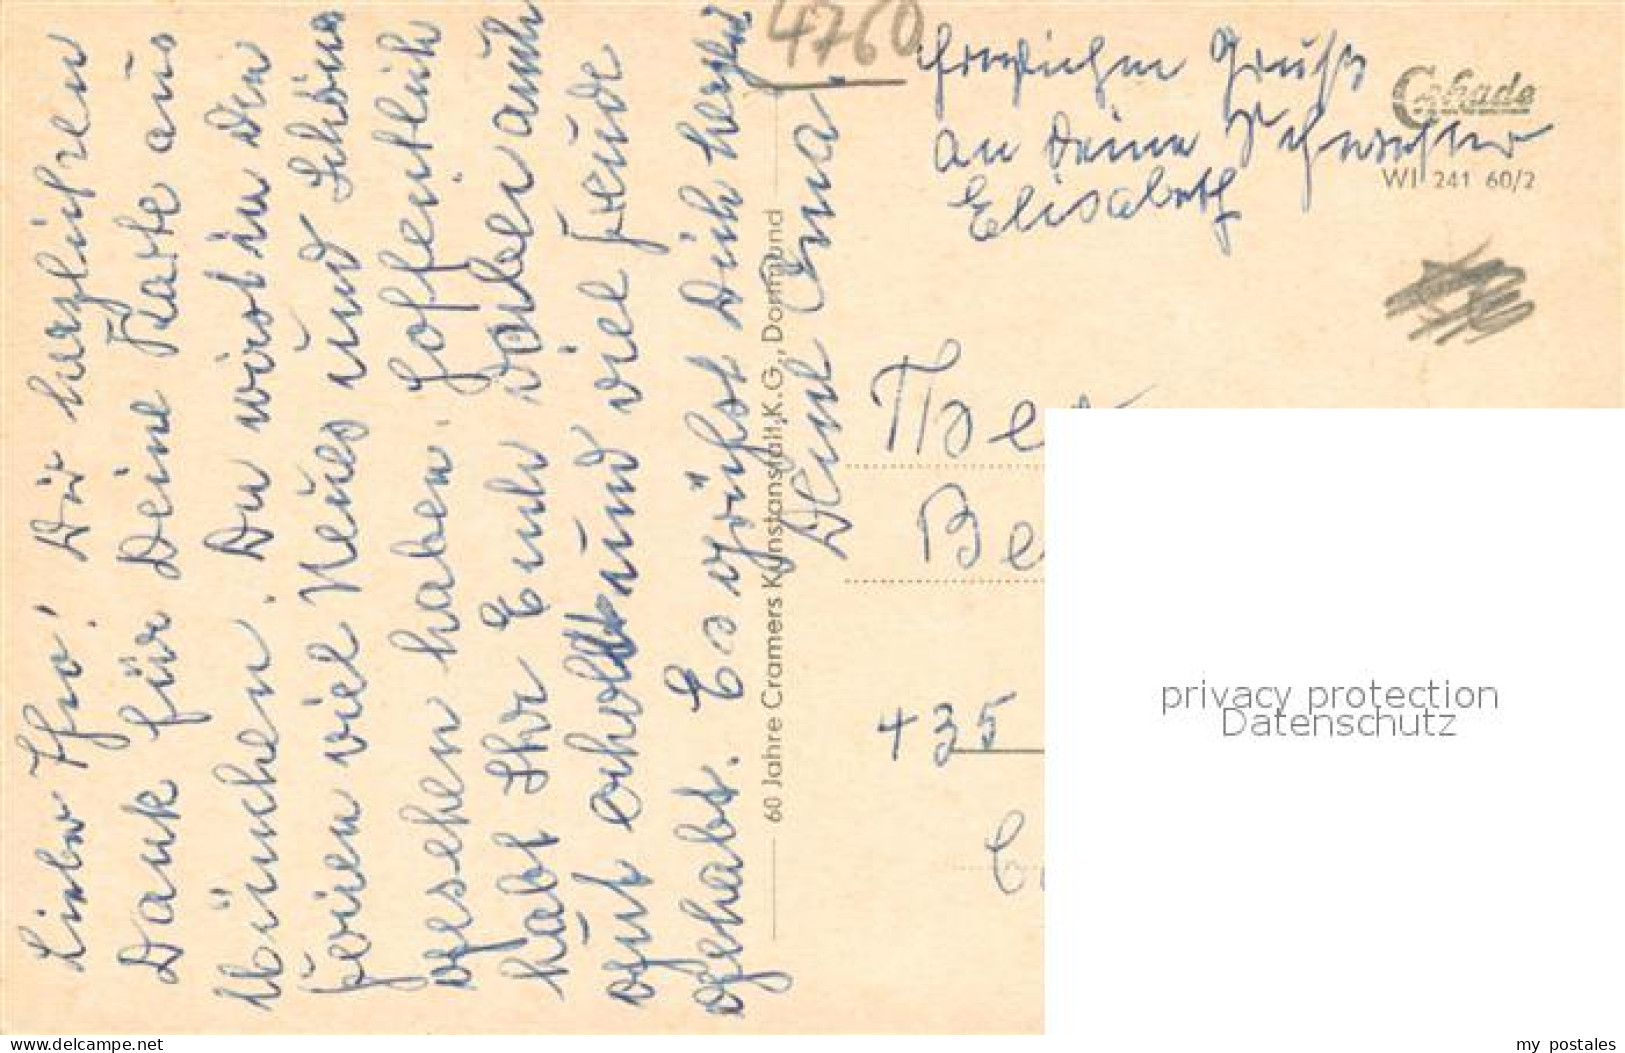 Lieber Theo! Dir herzlichen
Dank für Deine Karte aus
München. Du wirst in den
Ferien viel Neues und Schönes
gesehen haben. Hoffentlich
habt Ihr Euch dabei auch
gut erholt und viel Freude
gehabt. Es grüßt Dich herzlich
Deine Oma
4760
Herzlichen Gruß
an Deine Schwester
Elisabeth
Cekade
WI 241 60/2
60 Jahre Cramers Kunstanstalt K.G., Dortmund
Theo
Be
435
privacy protection
Datenschutz
www.delcampe.net
my_postales